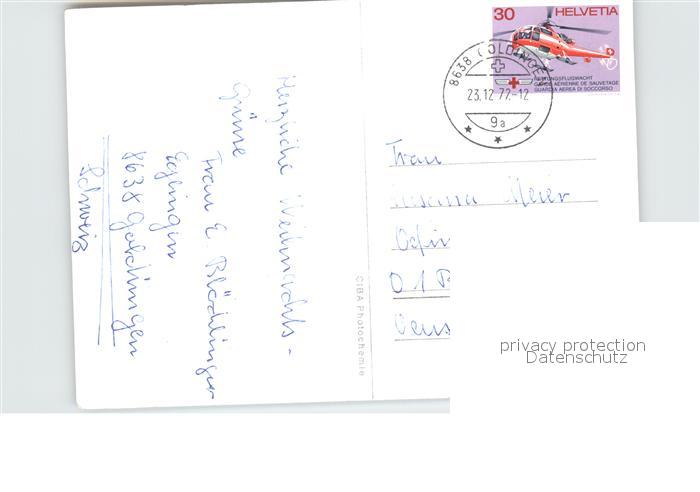 30 HELVETIA
RETTUNGSFLUGWACHT
GARDE AÉRIENNE DE SAUVETAGE
GUARDIA AEREA DI SOCCORSO
8638 GOLDINGEN
23.12.72.-12
9a
Herzliche Weihnachts-
Grüsse
Frau E. Blöchlinger
8638 Goldingen
Schweiz
CIBA Photochemie
Frau
Meier
privacy protection
Datenschutz